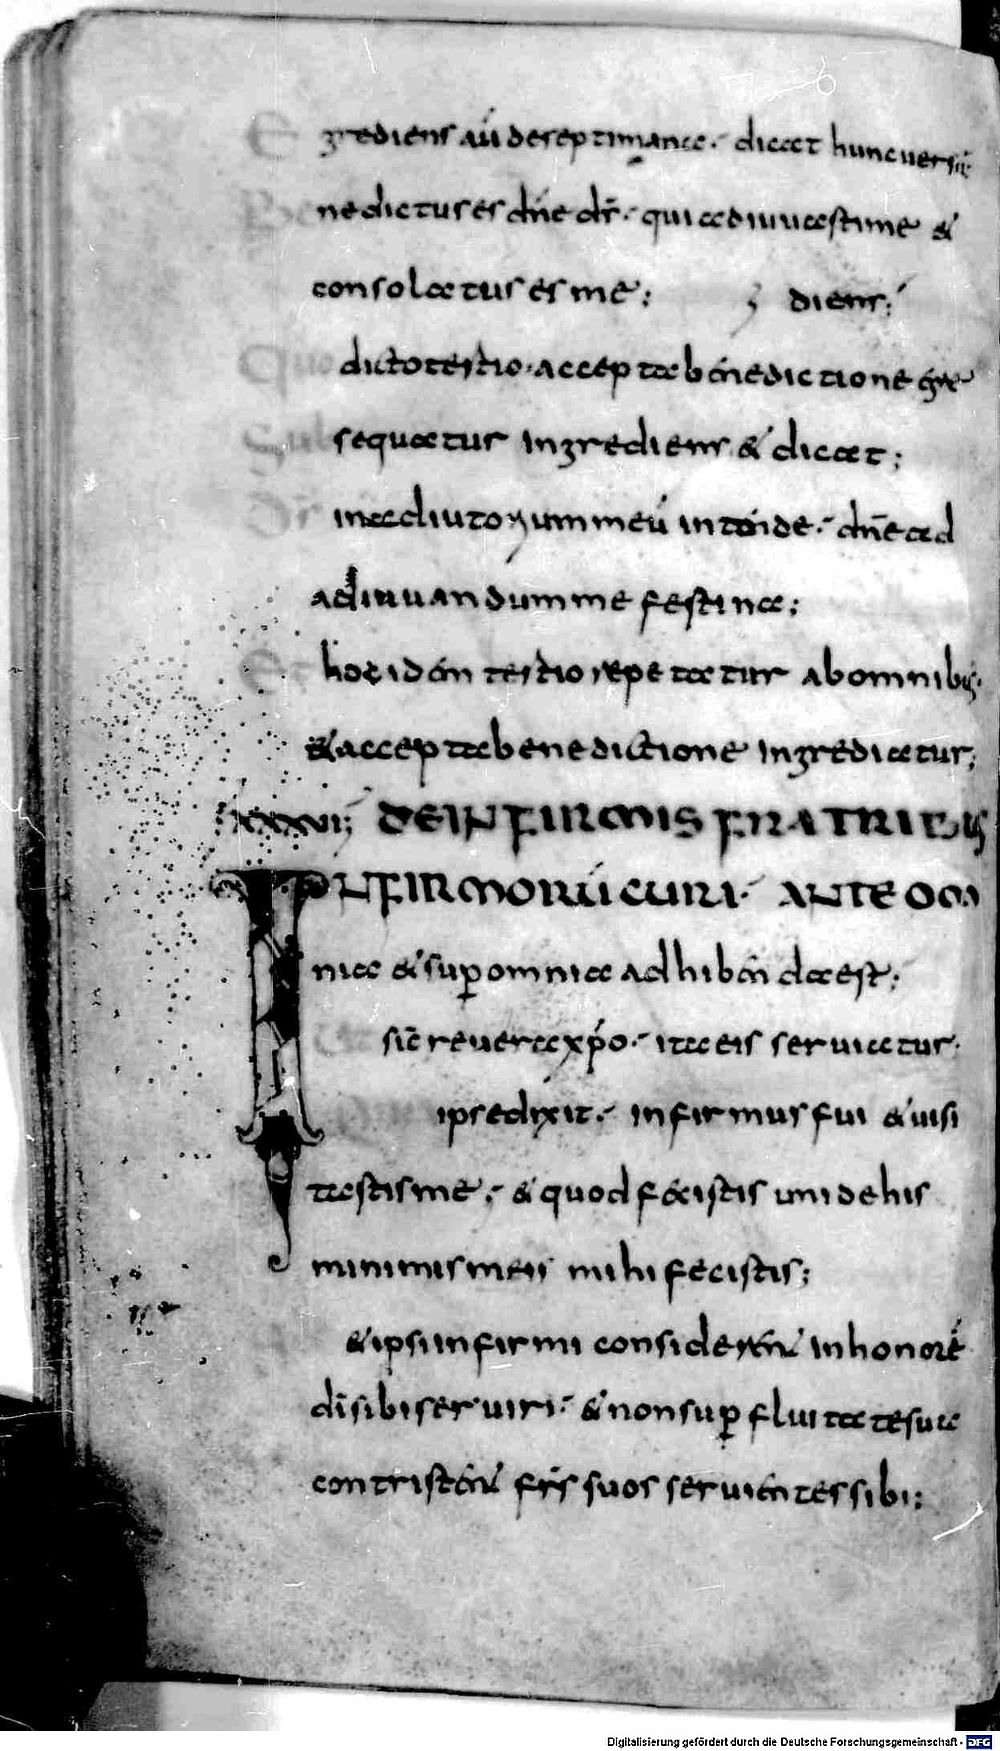 Egrediens aū de septimana· dicat hunc uersū
Benedictus es dn̄e ds̄· qui adiuuasti me &
consolatus es me; diens;
Quo dicto tertio· accepta benedictione egre
Subsequatur ingrediens & dicat;
Ds̄ in adiutorium meū intende· dn̄e ad
adiuuandum me festina;
Et hoc idem tertio repetatur ab omnibus;
& accepta benedictione ingrediatur;
XXXVI; DE INFIRMIS FRATRIBUS
INFIRMORŪ CURA· ANTE OM
nia & sup̄ omnia adhibenda est;
sic̄ reuera xp̄o· ita eis seruiatur·
ipse dixit· infirmus fui & uisi
tastis me; & quod fecistis uni de his
minimis meis mihi fecistis;
& ipsi infirmi considerent in honorē
dī sibi seruiri· & non sup̄fluitate sua
contristent frīs suos seruientes sibi;
Digitalisierung gefördert durch die Deutsche Forschungsgemeinschaft - DFG